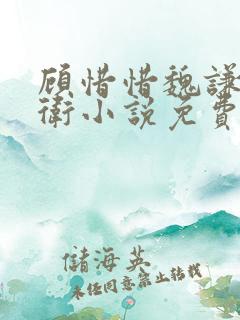 顾惜惜魏谦
衛小説免費
儲海英
未经同意禁止转载